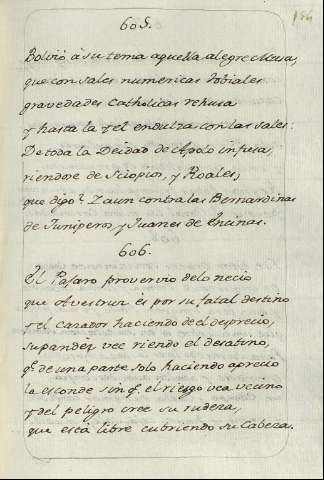 605.
184
Bolvió à su tema aquella alegre Musa,
que con sales numericas joviales
gravedades catholicas rehusa
y hasta la yel endulza con las sales:
De toda la Deidad de Apolo infusa,
riendose de Sciopios, y Roales,
que digo? Zaun contra las Bernardinas
de Juniperos, y Juanes de Encinas.
606.
El Pajaro provervio de lo necio
que Avestruz es por su fatal destino
y el cazador haciendo de el desprecio,
su pandér vee riendo el desatino,
q.e de una parte solo haciendo aprecio
la esconde sin q.e el riesgo vea vecino
y del peligro cree su rudeza,
que está libre cubriendo su Cabeza.